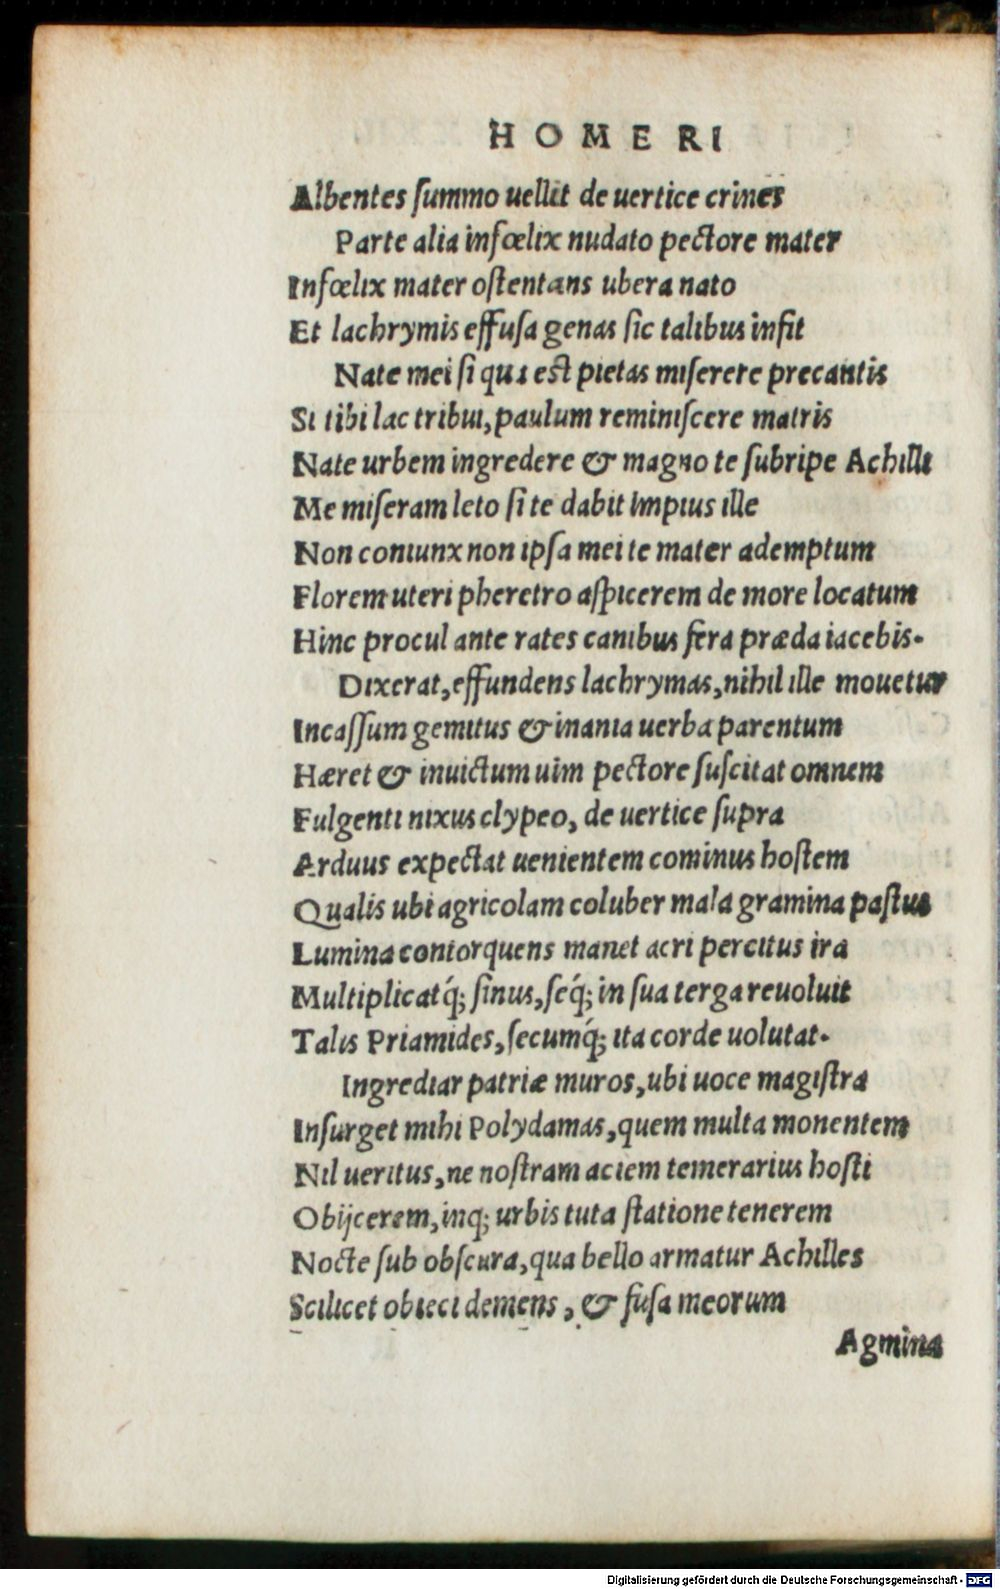 HOMERI
Albentes ſummo uellit de uertice crines
Parte alia infœlix nudato pectore mater
Infœlix mater oſtentans ubera nato
Et lachrymis effuſa genas ſic talibus infit
Nate mei ſi qua est pietas miſerere precantis
Si tibi lac tribui, paulum reminiſcere matris
Nate urbem ingredere & magno te ſubripe Achilli
Me miſeram leto ſi te dabit impius ille
Non coniunx non ipſa mei te mater ademptum
Florem uteri pheretro aſpicerem de more locatum
Hinc procul ante rates canibus fera præda iacebis.
Dixerat, effundens lachrymas, nihil ille mouetur
Incaſſum gemitus & inania uerba parentum
Hæret & inuictum uim pectore ſuſcitat omnem
Fulgenti nixus clypeo, de uertice ſupra
Arduus expectat uenientem cominus hoſtem
Qualis ubi agricolam coluber mala gramina paſtus
Lumina contorquens manet acri percitus ira
Multiplicatq́; ſinus, ſeq́; in ſua terga reuoluit
Talis Priamides, ſecumq́; ita corde uolutat.
Ingrediar patriæ muros, ubi uoce magiſtra
Inſurget mihi Polydamas, quem multa monentem
Nil ueritus, ne noſtram aciem temerarius hoſti
Obijcerem, inq; urbis tuta ſtatione tenerem
Nocte ſub obſcura, qua bello armatur Achilles
Scilicet obieci demens, & fuſa meorum
Agmina
Digitalisierung gefördert durch die Deutsche Forschungsgemeinschaft - DFG